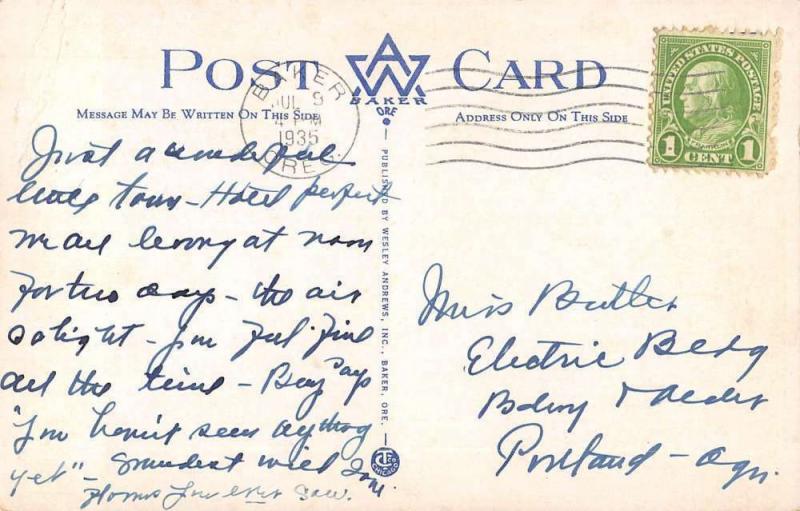 POST CARD
BAKER
ORE
MESSAGE MAY BE WRITTEN ON THIS SIDE
ADDRESS ONLY ON THIS SIDE
BAKER
JUL 9
4 PM
1935
OREG.
UNITED STATES POSTAGE
FRANKLIN
1 CENT 1
Just a wonderful
little town - Hotel perfect
We are leaving at noon
For two days - the air
so light - you Feel Fine
all the time - Bay says
"You haven't seen anything
yet" - Grandest wild
Flowers you ever saw.
PUBLISHED BY WESLEY ANDREWS, INC., BAKER, ORE.
CHICAGO
Miss Butler
Electric Bldg
Bdwy & Alder
Portland - Ogn.